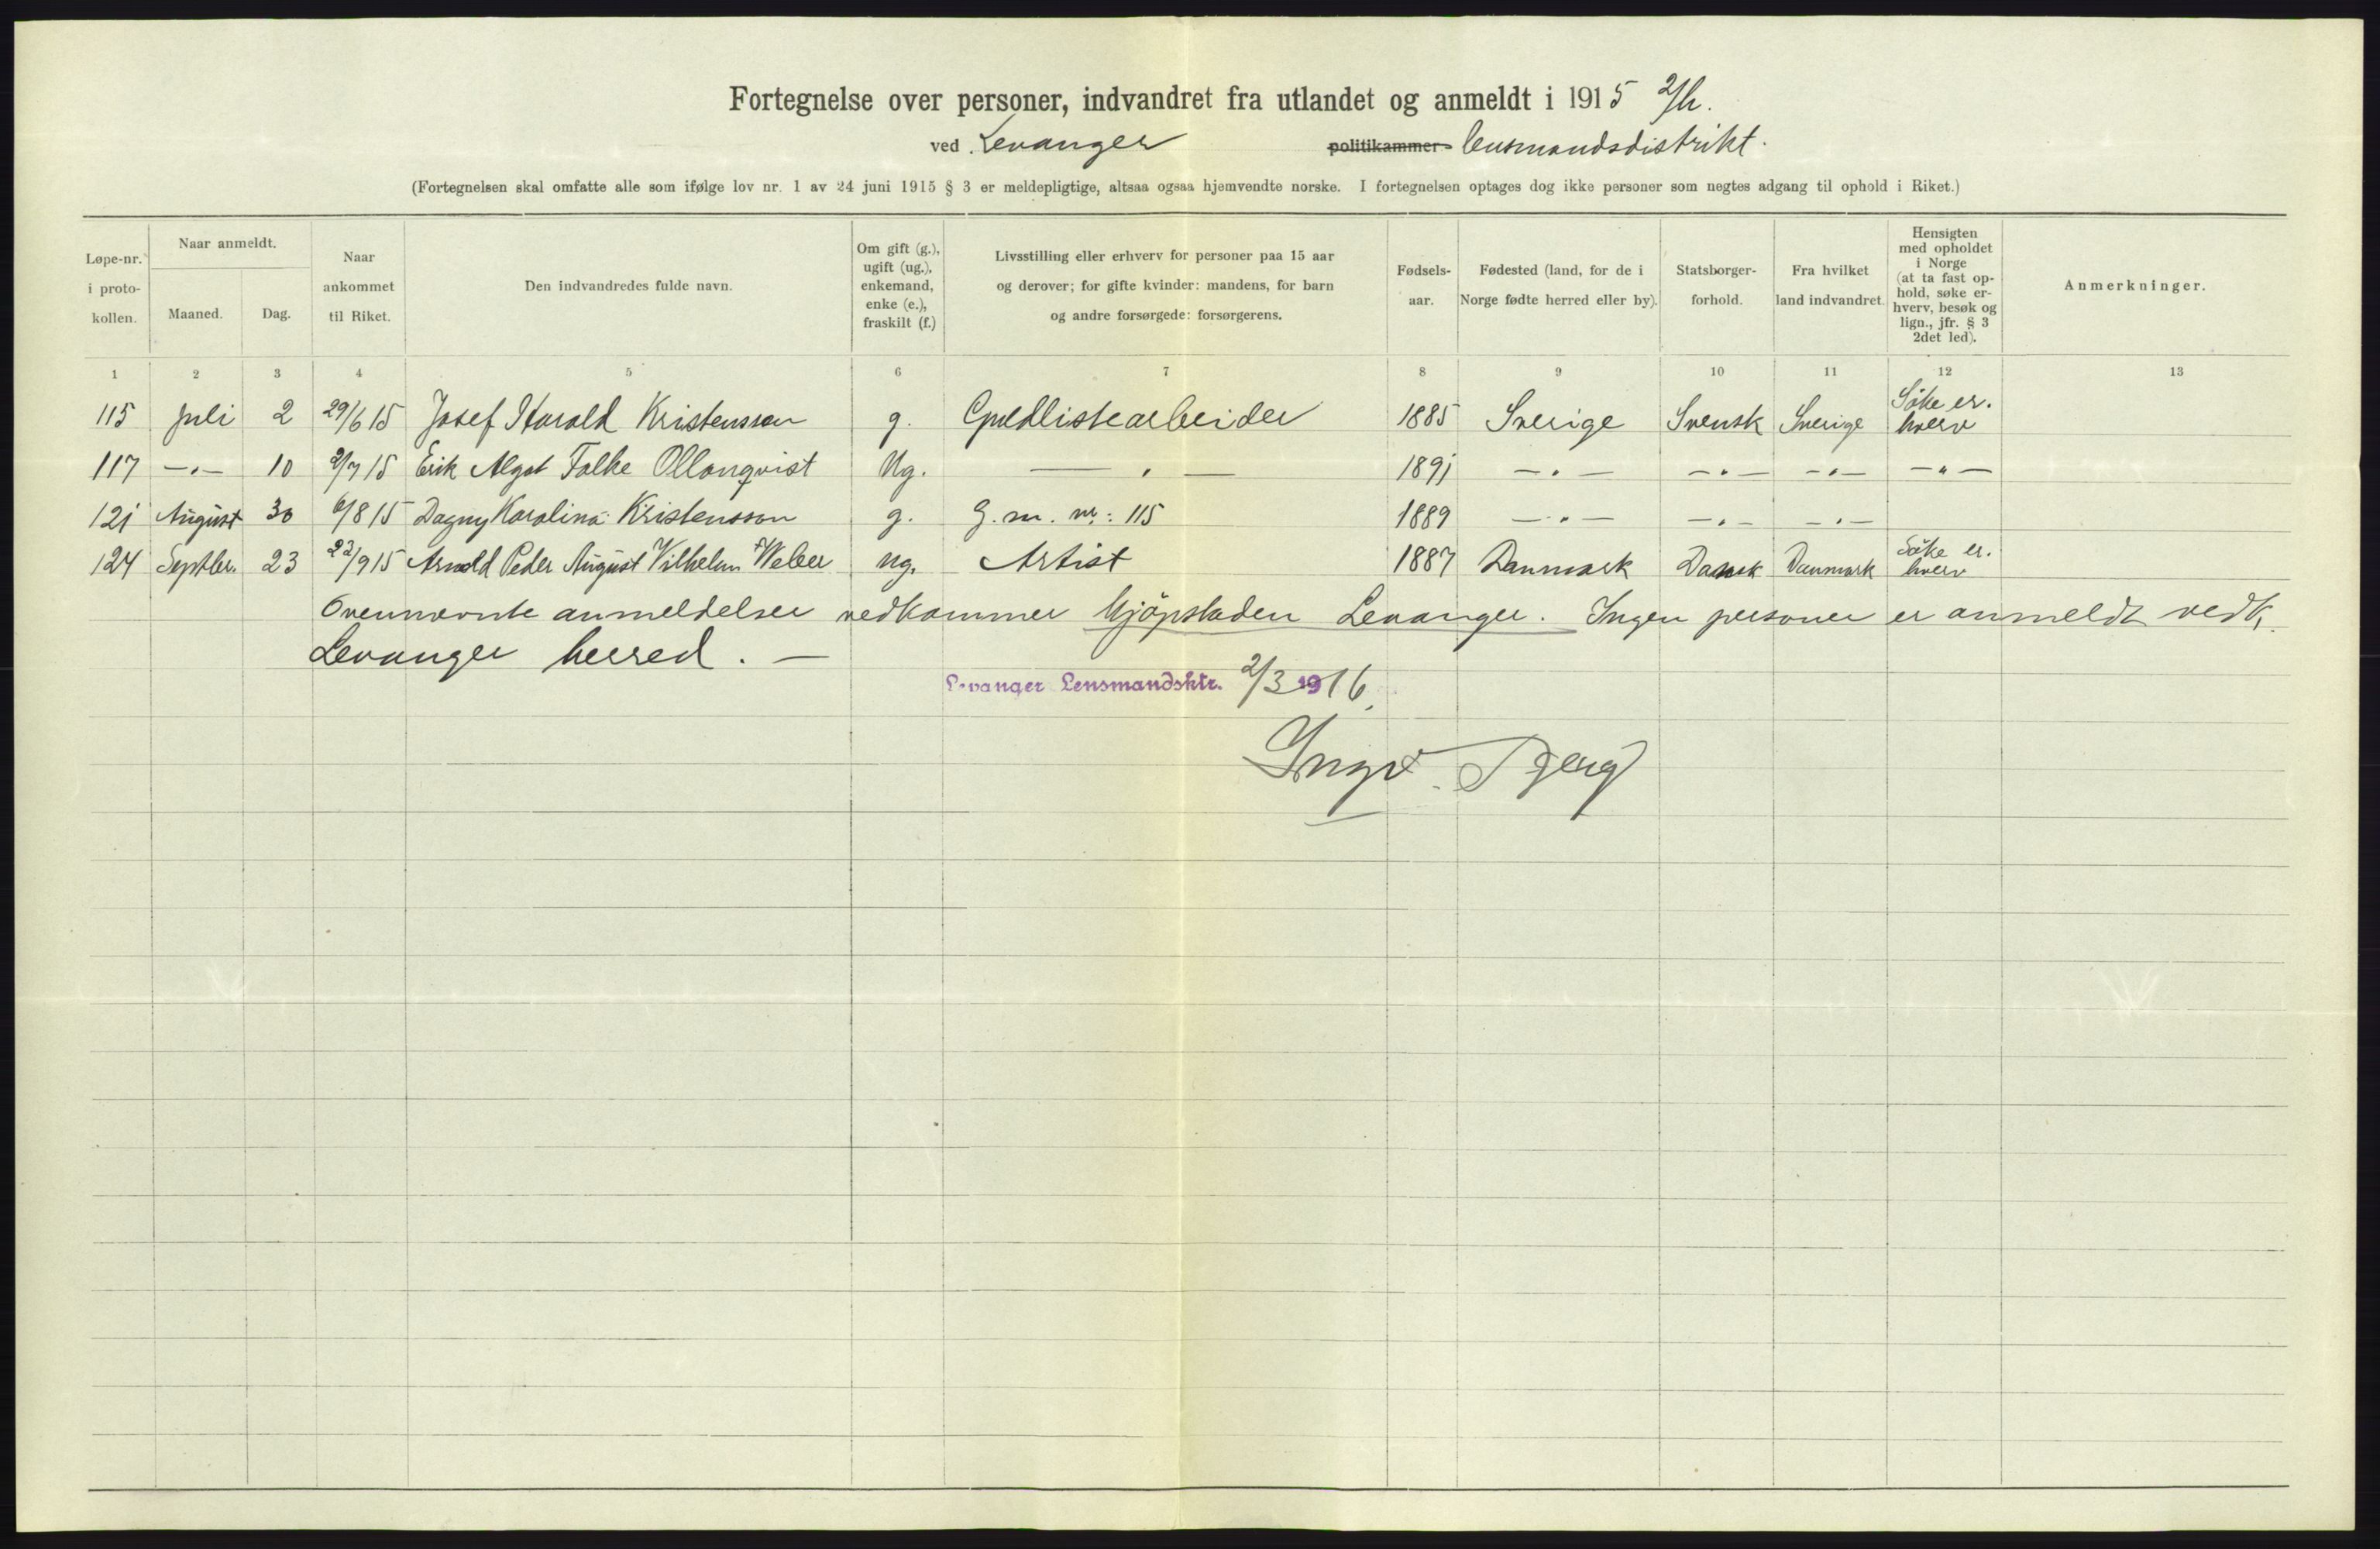 Fortegnelse over personer, indvandret fra utlandet og anmeldt i 1915 2/h.
ved Levanger politikammer lensmandsdistrikt.
(Fortegnelsen skal omfatte alle som ifølge lov nr. 1 av 24 juni 1915 § 3 er meldepligtige, altsaa ogsaa hjemvendte norske. I fortegnelsen optages dog ikke personer som negtes adgang til ophold i Riket.)
Løpe-nr. i proto-kollen. Naar anmeldt. Maaned. Dag. Naar ankommet til Riket. Den indvandredes fulde navn. Om gift (g.), ugift (ug.), enkemand, enke (e.), fraskilt (f.) Livsstilling eller erhverv for personer paa 15 aar og derover; for gifte kvinder: mandens, for barn og andre forsørgede: forsørgerens. Fødsels-aar. Fødested (land, for de i Norge fødte herred eller by). Statsborger-forhold. Fra hvilket land indvandret. Hensigten med opholdet i Norge (at ta fast op-hold, søke er-hverv, besøk og lign., jfr. § 3 2det led). Anmerkninger.
1 2 3 4 5 6 7 8 9 10 11 12 13
115 Juli 2 29/6 15 Josef Harald Kristensson g. Guldlistearbeider 1885 Sverige Svensk Sverige Söke er-hverv
117 —„— 10 2/7 15 Erik Algot Folke Ollonqvist Ug. —„— 1891 —„— —„— —„— —„—
121 August 30 6/8 15 Dagny Karolina Kristensson g. G. m. nr: 115 1889 —„— —„— —„—
124 Septbr. 23 23/9 15 Arnold Peder August Vilhelm Weber ug. Artist 1887 Danmark Dansk Danmark Söke er-hverv
Ovennevnte anmeldelser vedkommer kjöpstaden Levanger. Ingen personer er anmeldt vedk.
Levanger herred. —
Levanger Lensmandsktr. 2/3 1916.
Ingv.